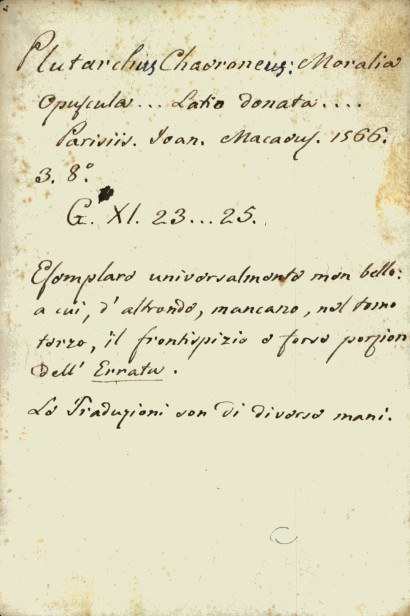 Plutarchius Chaeroneus: Moralia
Opuscula... Latio donata....
Parisiis. Ioan. Macaeus. 1566.
3. 8.º
G. XI. 23...25.
Esemplare universalmente men bello:
a cui, d'altronde, mancano, nel tomo
terzo, il frontispizio e forse porzion
dell' Errata.
Le Traduzioni son di diverse mani.